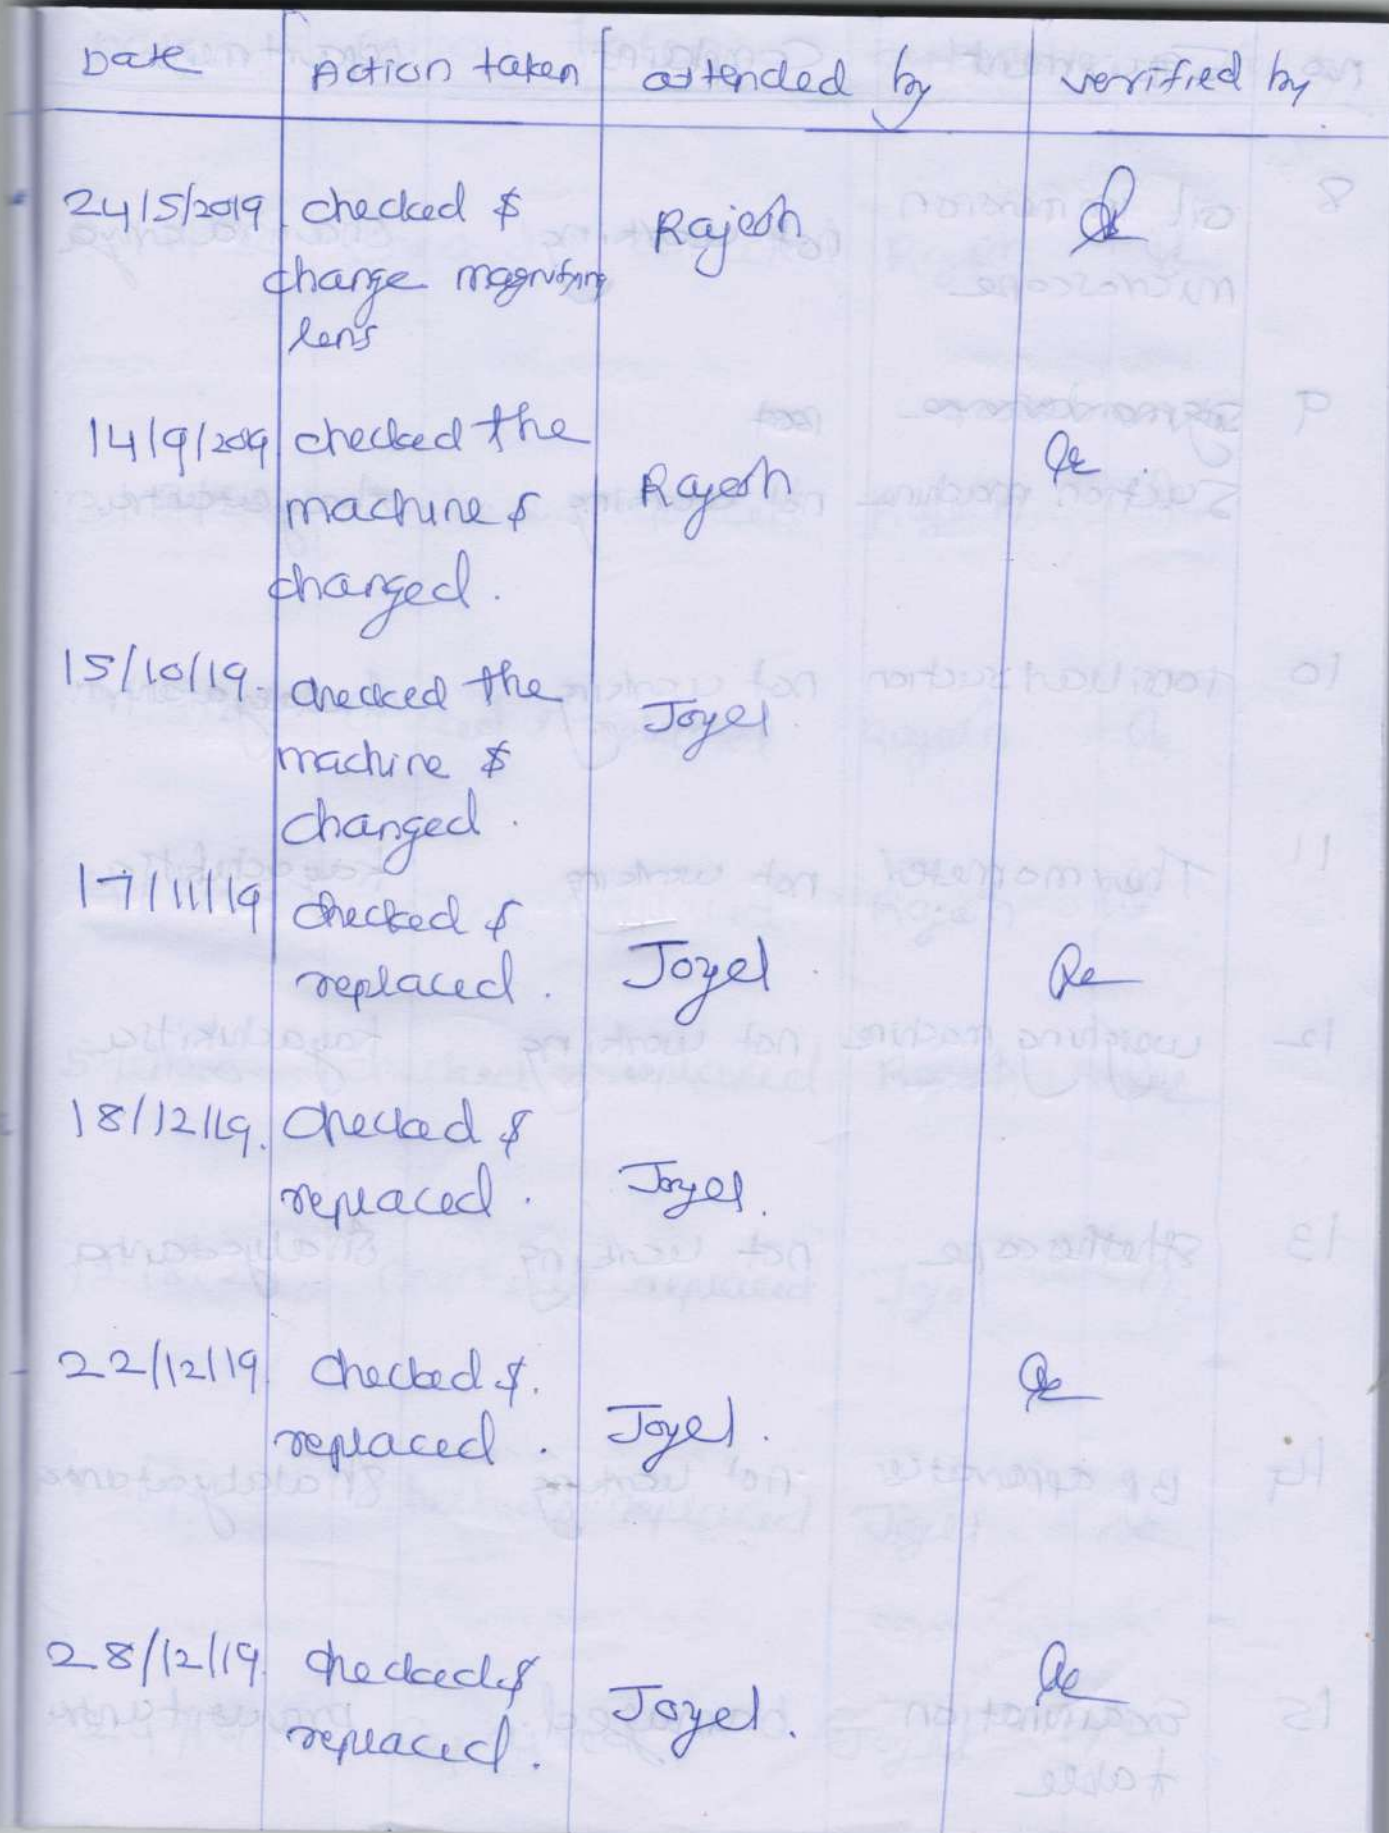 Date Action taken attended by verified by
24/5/2019 checked & Rajesh
change magnifying
lens
14/9/2019 checked the Rajesh
machine &
changed.
15/10/19. checked the Joyel
machine &
changed.
17/11/19 checked &
replaced. Joyel
18/12/19. checked &
replaced. Joyel.
22/12/19 checked &.
replaced. Joyel.
28/12/19. checked &
replaced. Joyel.